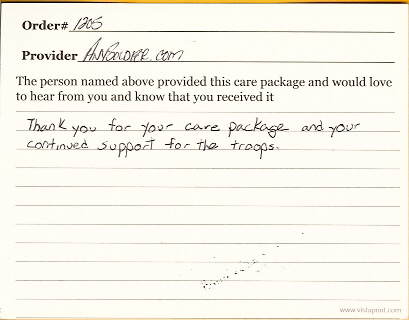 Order# 1205
Provider AnySoldier.com
The person named above provided this care package and would love
to hear from you and know that you received it
Thank you for your care package and your
continued support for the troops.
www.vistaprint.com